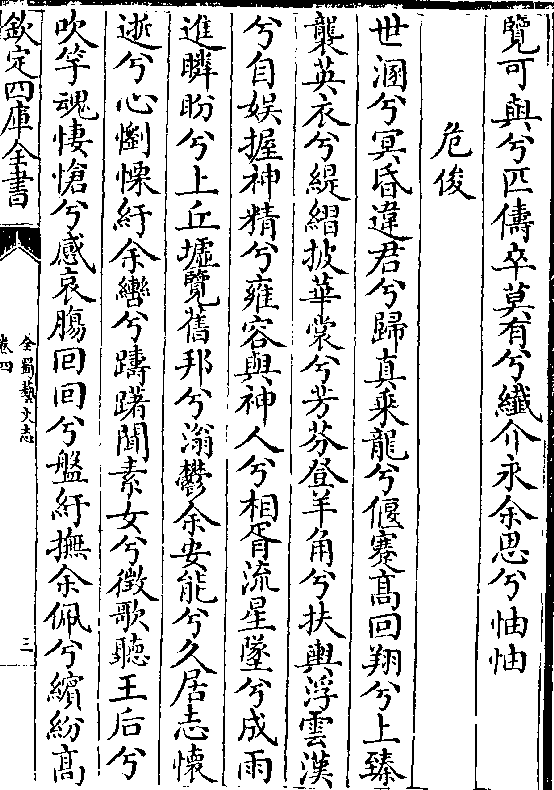 覽可與兮匹儔卒莫有兮纖介永余思兮怞怞
危俊
世溷兮冥昏違君兮歸真乘龍兮偃蹇髙回翔兮上臻
襲英衣兮緹䌌披華裳兮芳芬登羊角兮扶輿浮雲漠
兮自娱握神精兮雍容與神人兮相胥流星墜兮成雨
進瞵盼兮上丘墟覽舊邦兮滃鬱余安能兮久居志懷
逝兮心懰慄紆余轡兮躊躇聞素女兮微歌聽王后兮
吹竽魂悽愴兮感哀腸回回兮盤紆撫余佩兮繽紛髙
欽定四庫全書
全蜀藝文志
卷四
三